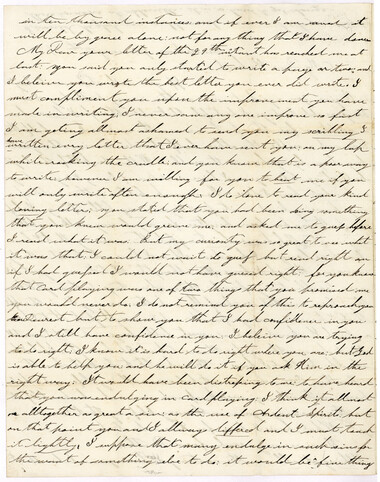 in ten thousand instances and if ever I am saved it
will be by grace alone not for any thing that I have done
My Dear your letter of the 29th instant has reached me at
last you said you only started to write a page or two; and
I believe you wrote the best letter you ever did write. I
must compliment you upon the improvement you have
made in writing, I never saw any one improve so fast
I am geting allmost ashamed to send you my scribling I
have written every letter that I ever have sent you; on my lap
while rocking the cradle; and you know that is a poor way
to write however I am willing for you to beat me if you
will only write often enough. I do love to read your kind
loving letters; you stated that you had been doing something
that you knew would grieve me; and asked me to guess before
I read what it was but my curiosity was so great to se what
it was that I could not wait to guess but read right on
if I had guessed I would not have guessed right for you know
that card playing was one of two thing that you promised me
you would never do; I do not remind you of this to reproach you
Dearest but to show you that I had confidence in you
and I still have confidence in you. I believe you are trying
to do right; I know it is hard to do right where you are; but God
is able to help you and he will do it if you ask Him in the
right way. It would have been distressing to me to have heard
that you was indulging in card playing I think it allmost
or alltogether as great a sin; as the use of Ardent Spirits but
on that point you and I allways differed and I must touch
it lightly, I suppose that many endalge in such sins for
the want of something else to do it would be a fine thing